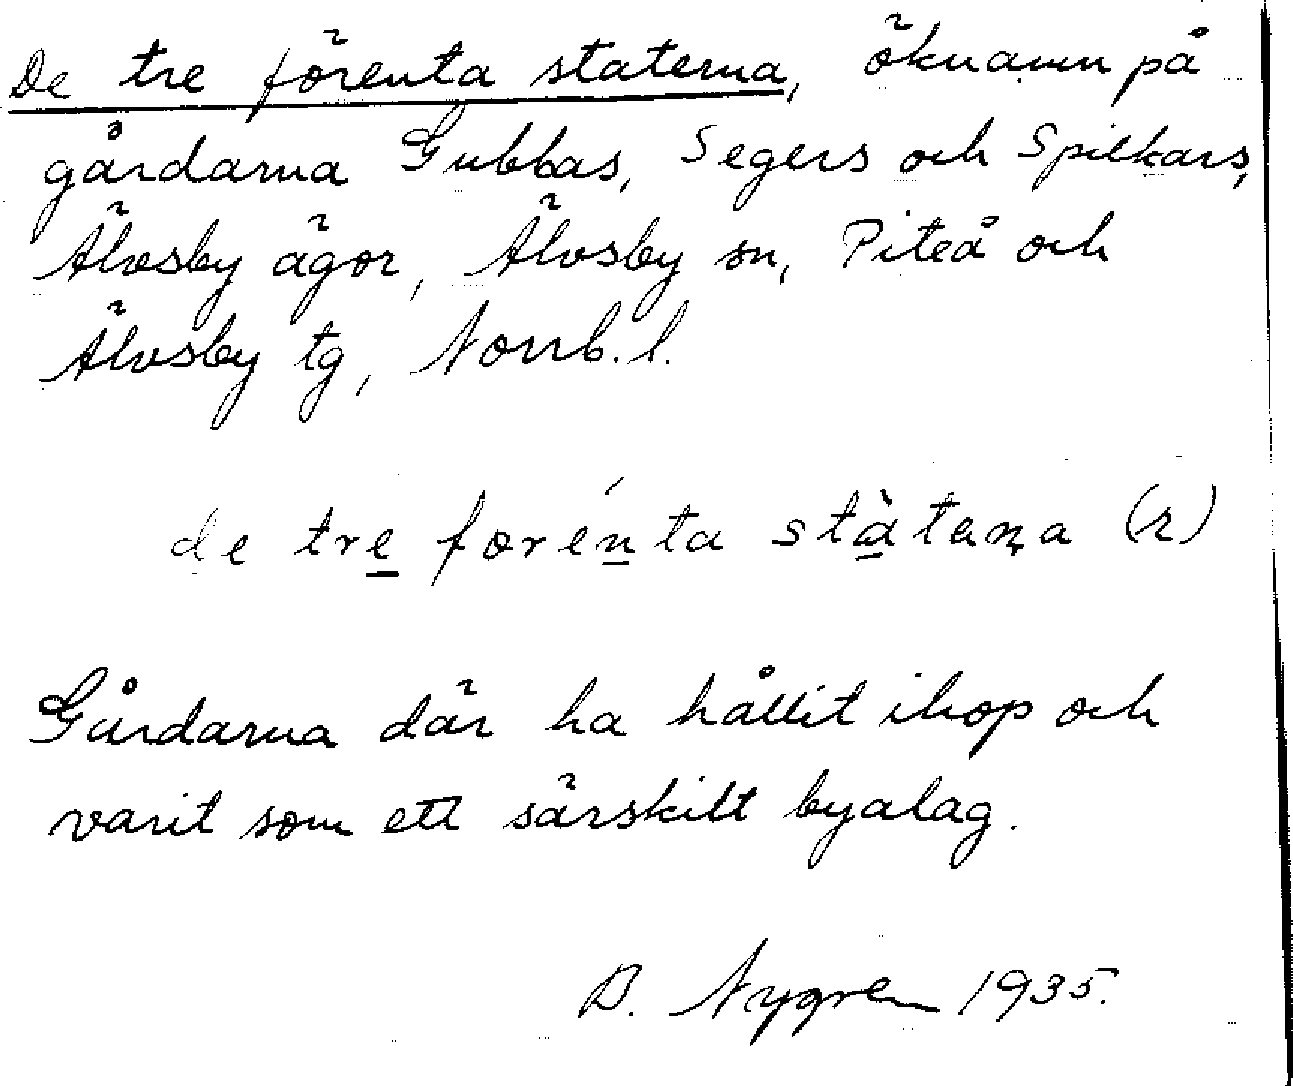 De tre förenta staterna, öknamn på
gårdarna Gubbas, Segers och Spikars,
Älvsby ägor, Älvsby sn, Piteå och
Älvsby tg, Norrb. l.
de tre forénta stàtaṇa (r)
Gårdarna där ha hållit ihop och
varit som ett särskilt byalag.
B. Nygren 1935.